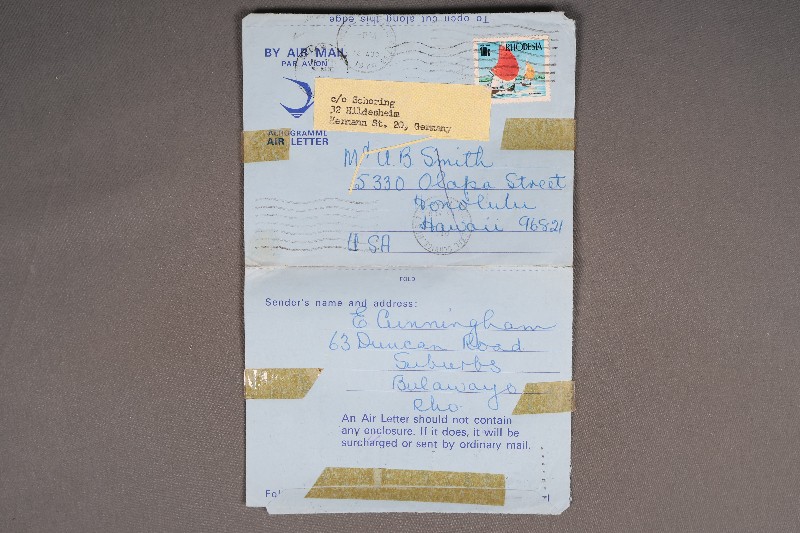 To open cut along this edge
BY AIR MAIL
PAR AVION
AEROGRAMME
AIR LETTER
RHODESIA
c/o Schoring
32 Hildesheim
Hermann St. 20, Germany
Mr A.B Smith
5330 Olapa Street
Honolulu
Hawaii 96821
USA
FOLD
Sender's name and address:
E Cunningham
63 Duncan Road
Suburbs
Bulawayo
Rho
An Air Letter should not contain
any enclosure. If it does, it will be
surcharged or sent by ordinary mail.